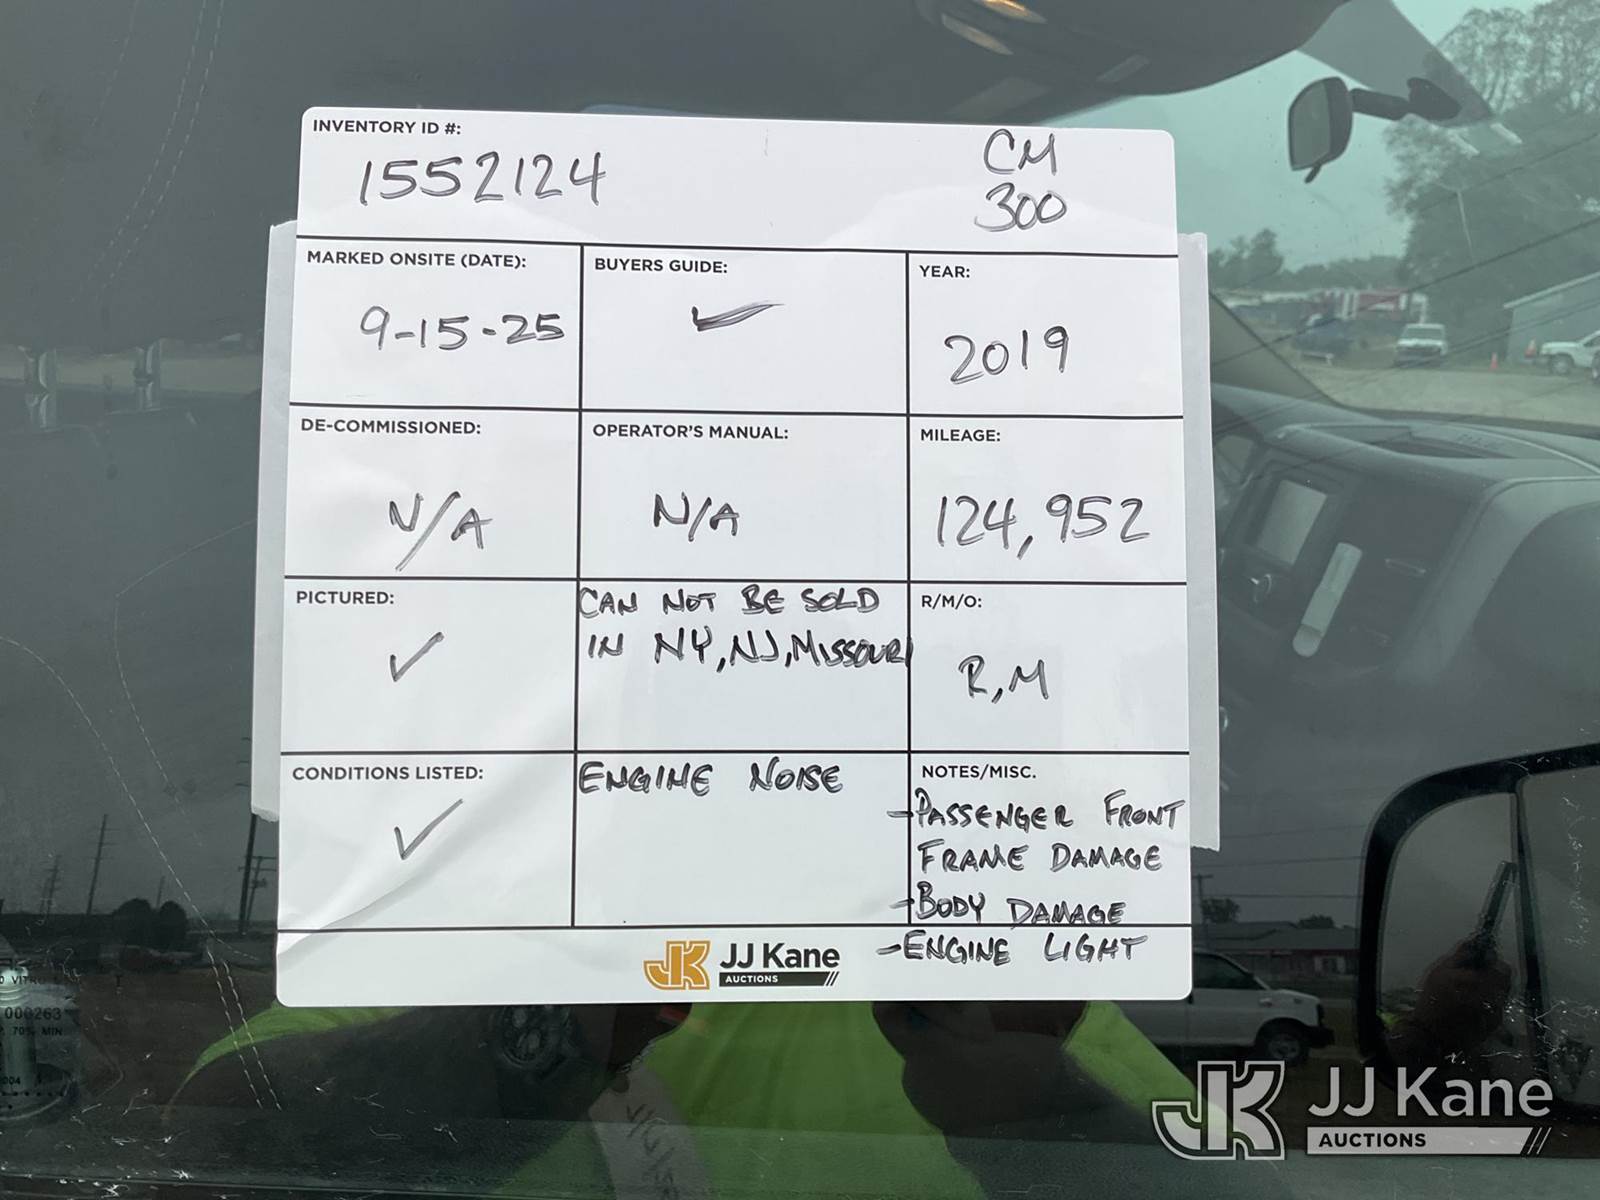 INVENTORY ID #:
1552124
CM
300
MARKED ONSITE (DATE):
9-15-25
BUYERS GUIDE:
✓
YEAR:
2019
DE-COMMISSIONED:
N/A
OPERATOR'S MANUAL:
N/A
MILEAGE:
124,952
PICTURED:
✓
CAN NOT BE SOLD
IN NY, NJ, MISSOURI
R/M/O:
R,M
CONDITIONS LISTED:
✓
ENGINE NOISE
NOTES/MISC.
-PASSENGER FRONT
FRAME DAMAGE
-BODY DAMAGE
-ENGINE LIGHT
JK JJ Kane
AUCTIONS
000263
70% MIN
JK JJ Kane
AUCTIONS